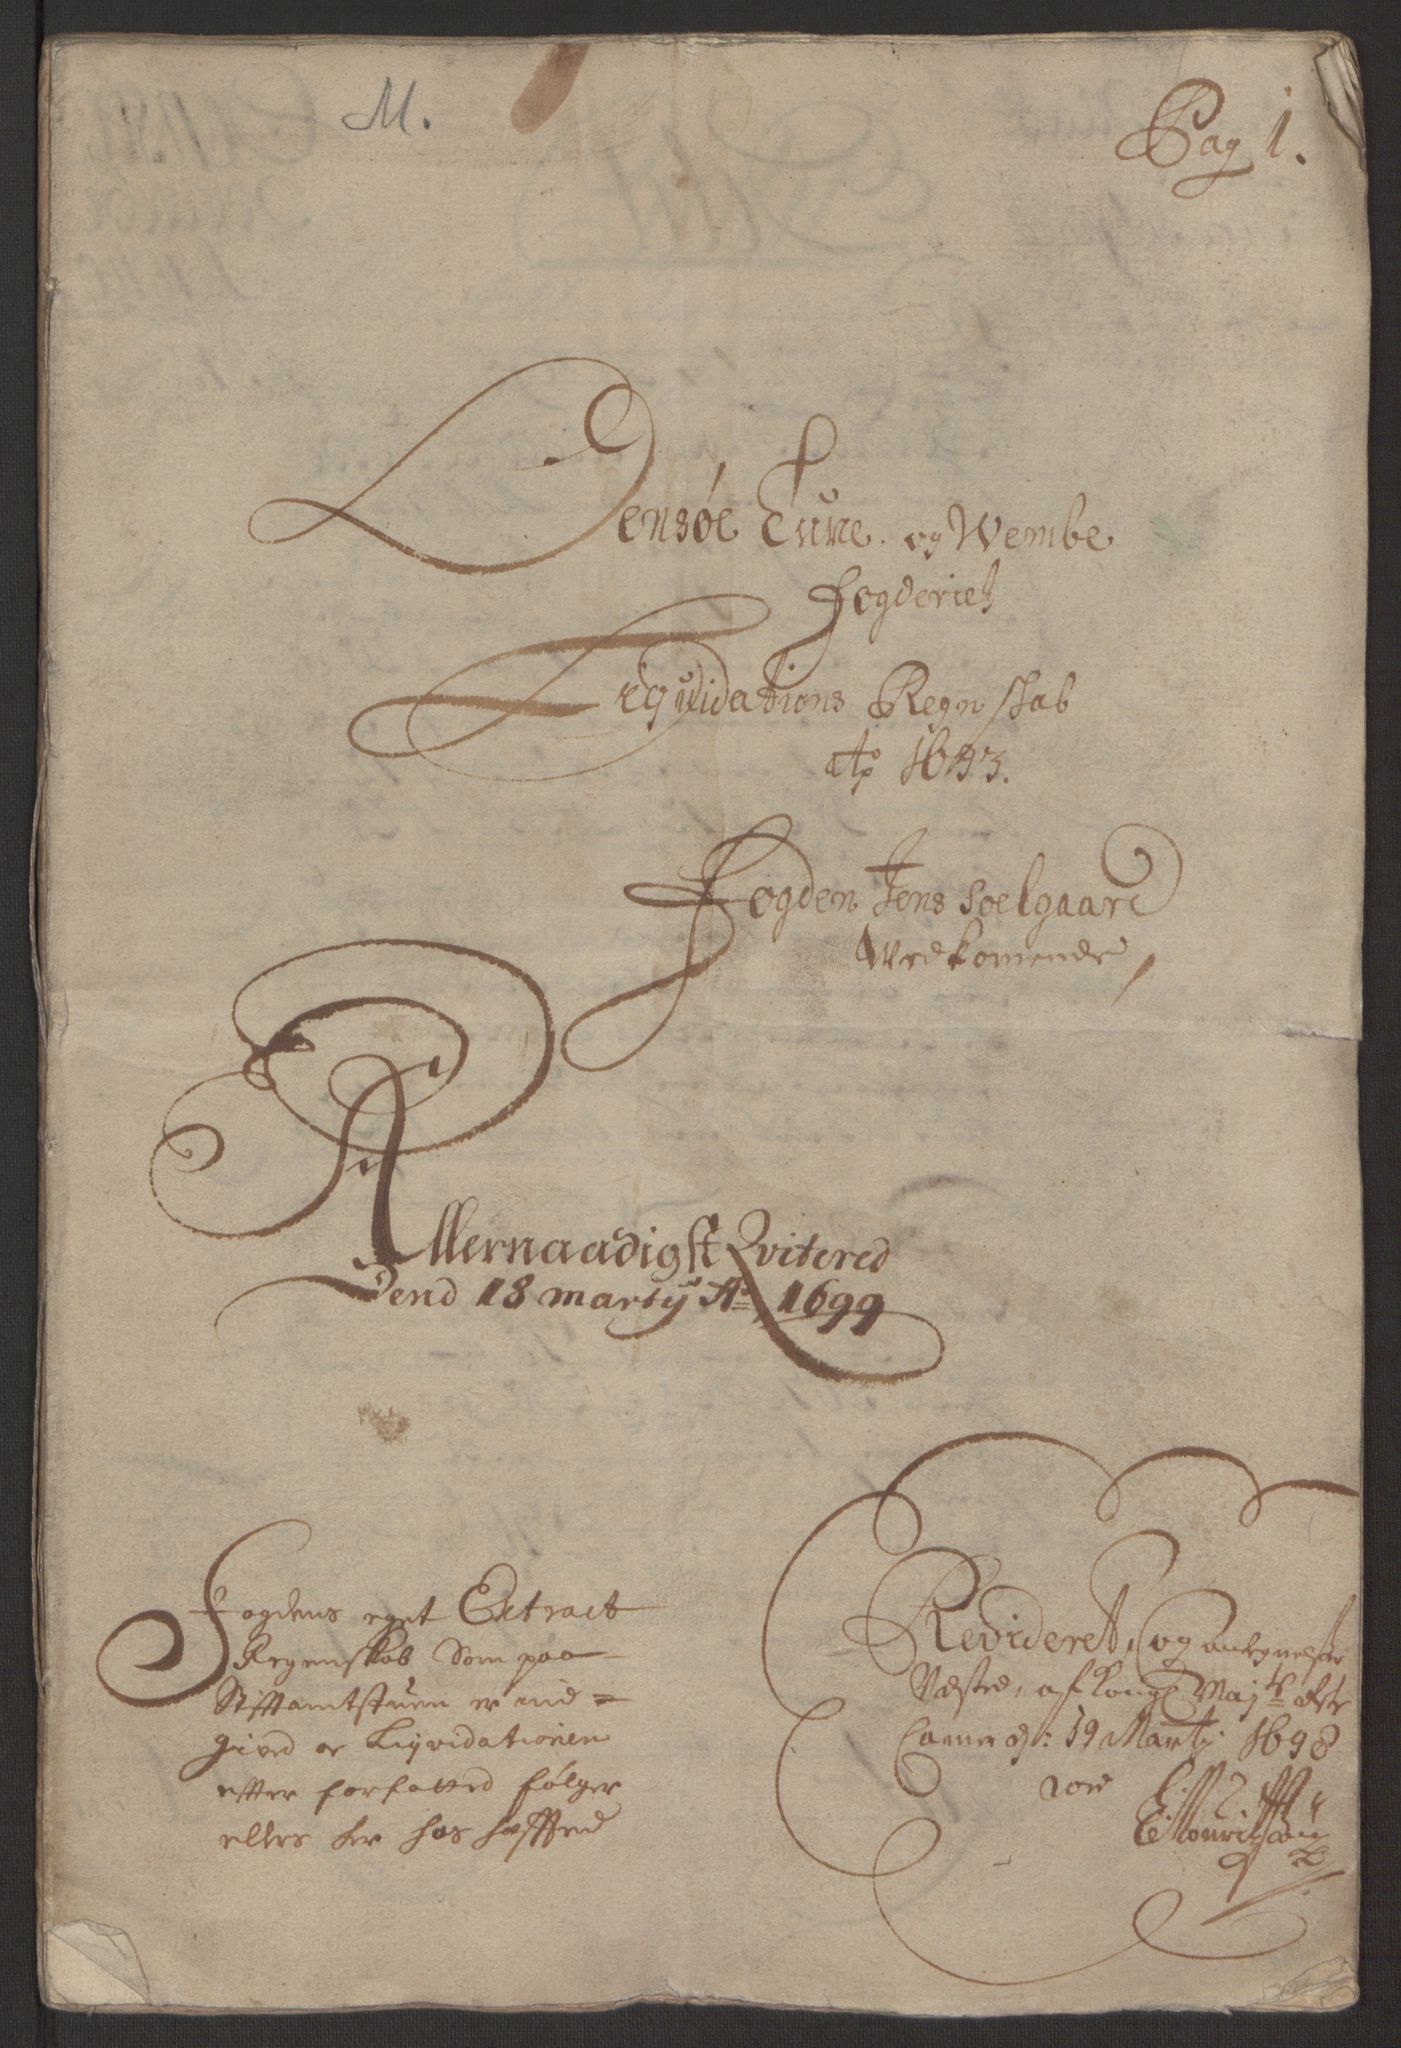 M.
Pag 1.
Sensøe Tune. og Wembe
Fogderiet
Liqvidations Regnskab
1693.
Fogden Jens Soelgaard
Vedkomende,
Allernaadigst Qvitered
Dend 18 marty Ao 1699
Fogdens eget Extract
Regenskab Som paa
Stiftamtstuen er ind=
gived er Liqvidationen
efter forfatted følger
ellers her hos hefftted
Revideret, og
af Kongl Mayts
Cammer d: 19 Marty 1698